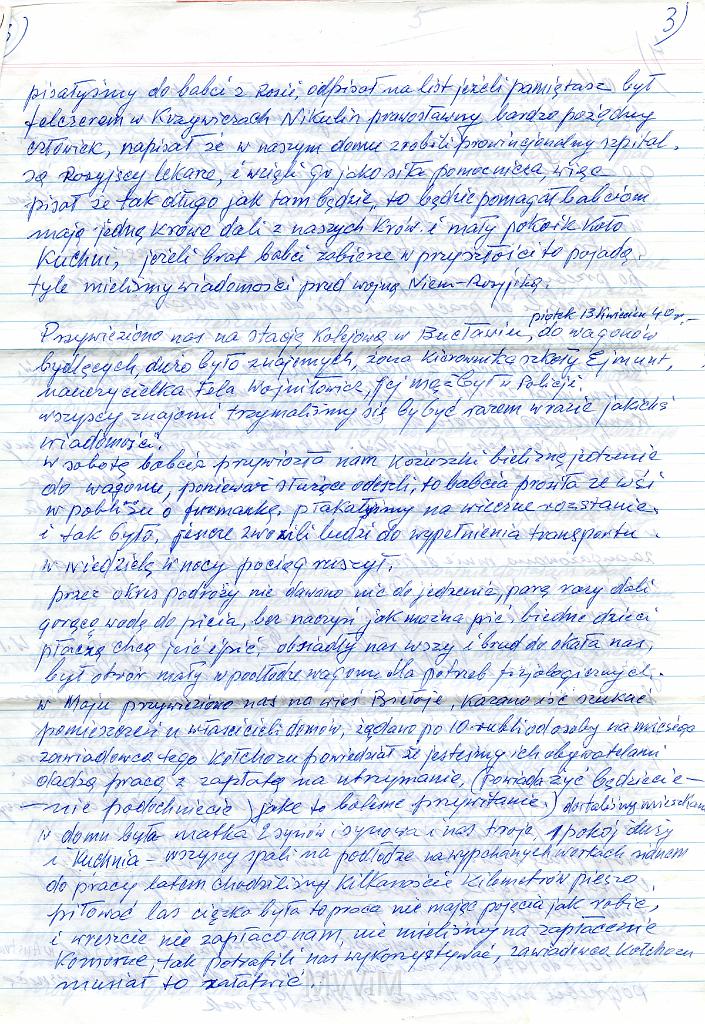 3)
pisałyśmy do babci z Rosii, odpisał na list jeżeli pamiętasz był
felczerem w Krzywiczach Nikulin prawosławny bardzo pożądny
człowiek, napisał że w naszym domu zrobili prowincjonalny szpital,
są Rosyjscy lekarze, i wzięli go jako siła pomocnicza, więc
pisał że tak długo jak tam będzie, to będzie pomagał babciom
mają jedną krowę dali z naszych krów i mały pokoik koło
Kuchni, jeżeli brat babci zabierze w przyszłości to pojadą.
tyle mieliśmy wiadomości przed wojną Niem-Rosyjską.
piątek 13 kwiecień 40 r.-
Przywieziono nas na stację Kolejową w Budsławiu, do wagonów
bydlęcych, dużo było znajomych, żona Kierownika szkoły Ejmunt,
nauczycielka Fela Wojniłowicz, jej mąż był w Policji.
wszyscy znajomi trzymaliśmy się by być razem w razie jakichś
wiadomości.
w sobotę babcia przywiozła nam Kożuszki bieliznę jedzenie
do wagonu, ponieważ służące odeszli, to babcia prosiła ze wsi
w pobliżu o furmankę, płakałyśmy na wieczne rozstanie
i tak było, jeszcze zwozili ludzi do wypełnienia transportu.
w niedzielę w nocy pociąg ruszył.
przez okres podróży nie dawano nic do jedzenia, parę razy dali
gorącą wodę do picia, bez naczyń jak można pić, biedne dzieci
płaczą chcą jeść i pić, obsiadły nas wszy i brud do okała nas,
był otwór mały w podłodze wagonu dla potrzeb fizjologicznych.
w Maju przywieziono nas na wieś, Kazano iść szukać
pomieszczeń u właścicieli domów, żądano po 10 rubli od osoby na miesiąc
zawiadowca tego Kołchozu powiedział że jesteśmy ich obywatelami
dadzą pracę z zapłatą na utrzymanie, (powiada żyć będziecie -
- nie podochniecie) jakie to bolesne przywitanie,) dostaliśmy mieszkan
w domu była matka 2 synów i synowa i nas troje, 1 pokój duży
i Kuchnia - wszyscy spali na podłodze na wypchanych workach sianem
do pracy latem chodziliśmy Kilkanaście Kilometrów pieszo
piłować las ciężka była to praca nie mając pojęcia jak robić,
i wreszcie nie zapłaco nam, nie mieliśmy na zapłacenie
Komorne, tak potrafili nas wykorzystywać, zawiadowca Kołchozu
musiał to załatwić.